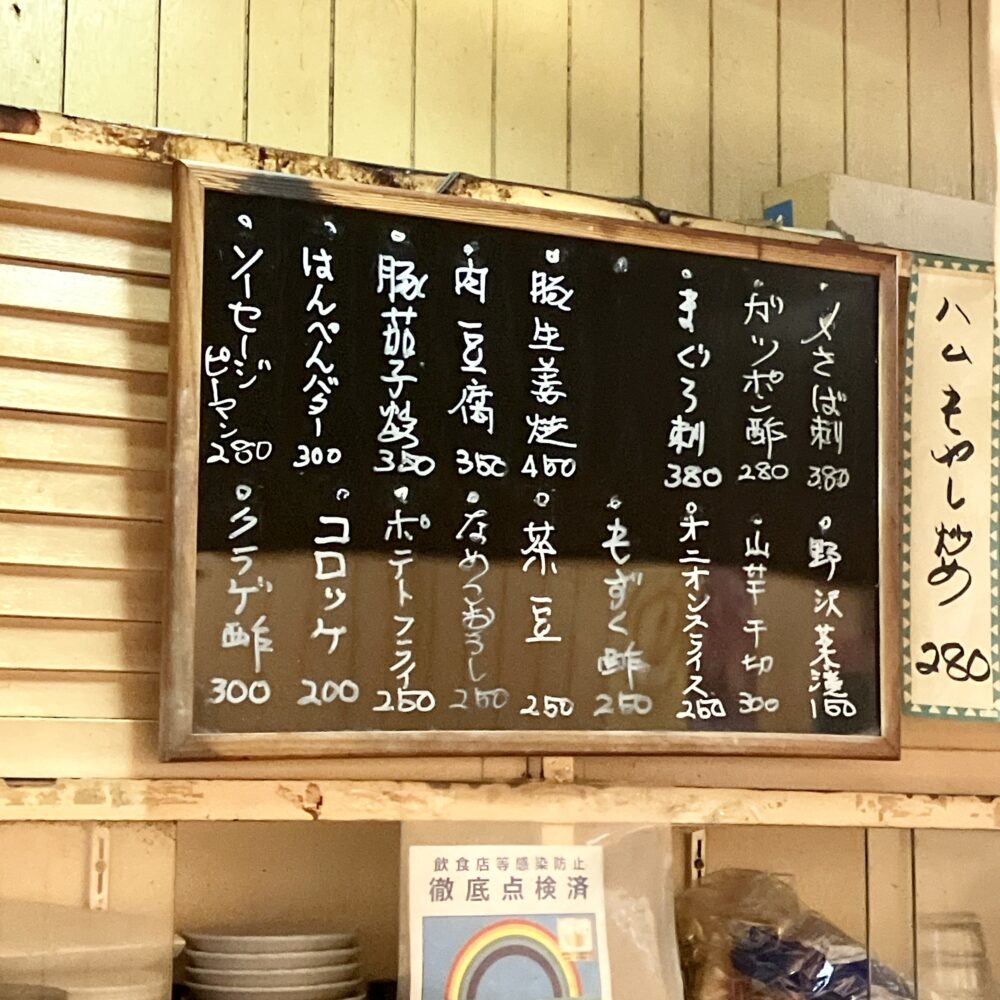 〆さば刺 380
ガツポン酢 280
まぐろ刺 380
豚生姜焼 450
肉豆腐 350
豚茄子炒め 350
はんぺんバター 300
ソーセージピーマン 280
野沢菜漬 150
山芋千切 300
オニオンスライス 250
もずく酢 250
茶豆 250
なめこおろし 250
ポテトフライ 250
コロッケ 200
クラゲ酢 300
ハムもやし炒め 280
飲食店等感染防止
徹底点検済